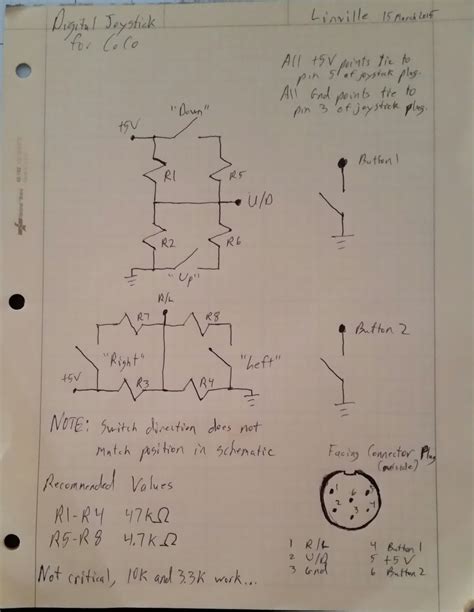 Digital Joystick
for CoCo
Linville 15 March 2015
All +5V points tie to
pin 5 of joystick plug.
All Gnd points tie to
pin 3 of joystick plug.
"Down"
+5V
R1
R5
U/D
R2
R6
"Up"
Button 1
R/L
R7
R8
"Right"
"Left"
+5V
R3
R4
Button 2
NOTE: Switch direction does not
match position in schematic
Facing Connector Plug
(outside)
Recommended Values
R1-R4 47kΩ
R5-R8 4.7kΩ
Not critical, 10k and 3.3k work...
1
6
4
2
3
5
1 R/L
2 U/D
3 Gnd
4 Button 1
5 +5V
6 Button 2